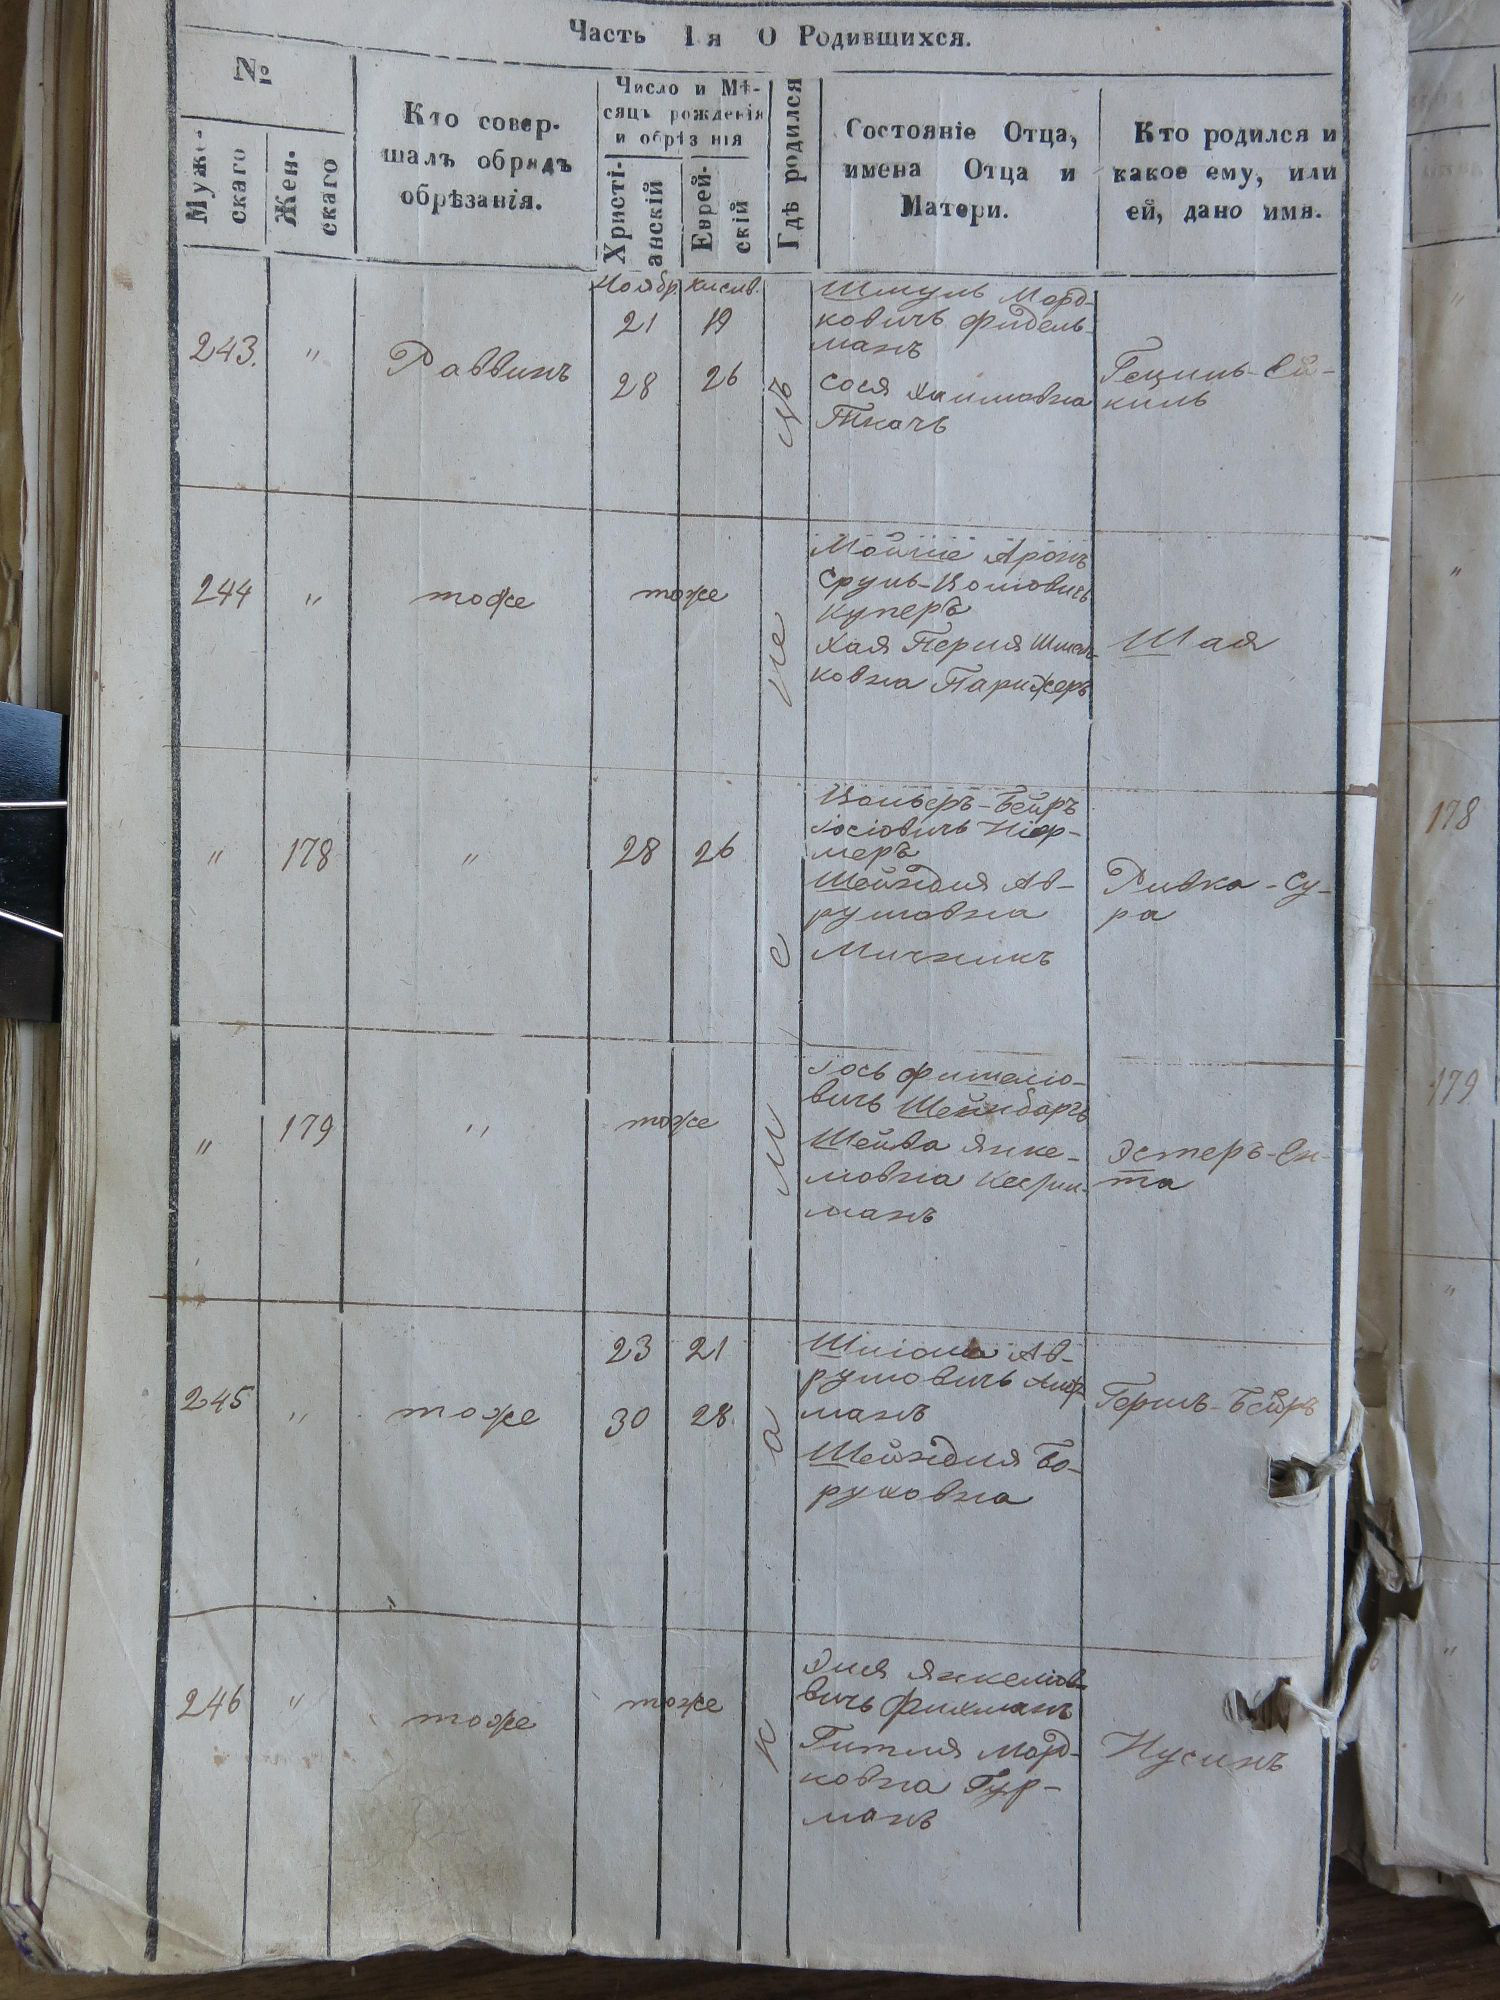 Часть 1я О Родившихся.
№
Муже-
скаго
Жен-
скаго
Кто совер-
шалъ обрядъ
обрѣзанія.
Число и Мѣ-
сяцъ рожденія
и обрѣз нія
Христі-
анскій
Еврей-
скій
Гдѣ родился
Состояніе Отца,
имена Отца и
Матери.
Кто родился и
какое ему, или
ей, дано имя.
Ноябр. кислв.
243. " Раввинъ
21 19
28 26
Шмуль Морд-
ковичъ Фидель-
манъ
Сося Хаимовна
Ткачъ
Гецель-Ей-
киль
244 " тоже тоже
Мойше Аронъ
Сруль-Волковичъ
Куперъ
Хая Перля Шмель-
ковна Парижеръ
Шая
" 178 " 28 26
Іосіовичъ
меръ
Шейндля Ав-
румовна
Мичникъ
Ривка-Су-
ра
" 179 " тоже
Іось Фишеліо-
вичъ Шейнбаръ
Шейва Янке-
ловна
манъ
Эстеръ-Ен-
та
245 " тоже
23 21
30 28.
Шліома Ав-
румовичъ
манъ
Шейндля Бо-
руховна
Гершъ-Бейръ
246 " тоже тоже
Эля Янкеліов-
вичъ Фихманъ
Гитля Морд-
ковна Гур-
манъ
Нусинъ
Каменецъ
"
"
178
179
"
"